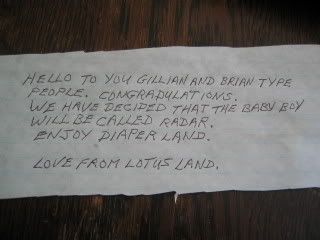 HELLO TO YOU GILLIAN AND BRIAN TYPE
PEOPLE. CONGRADULATIONS.
WE HAVE DECIDED THAT THE BABY BOY
WILL BE CALLED RADAR.
ENJOY DIAPER LAND.
LOVE FROM LOTUS LAND.